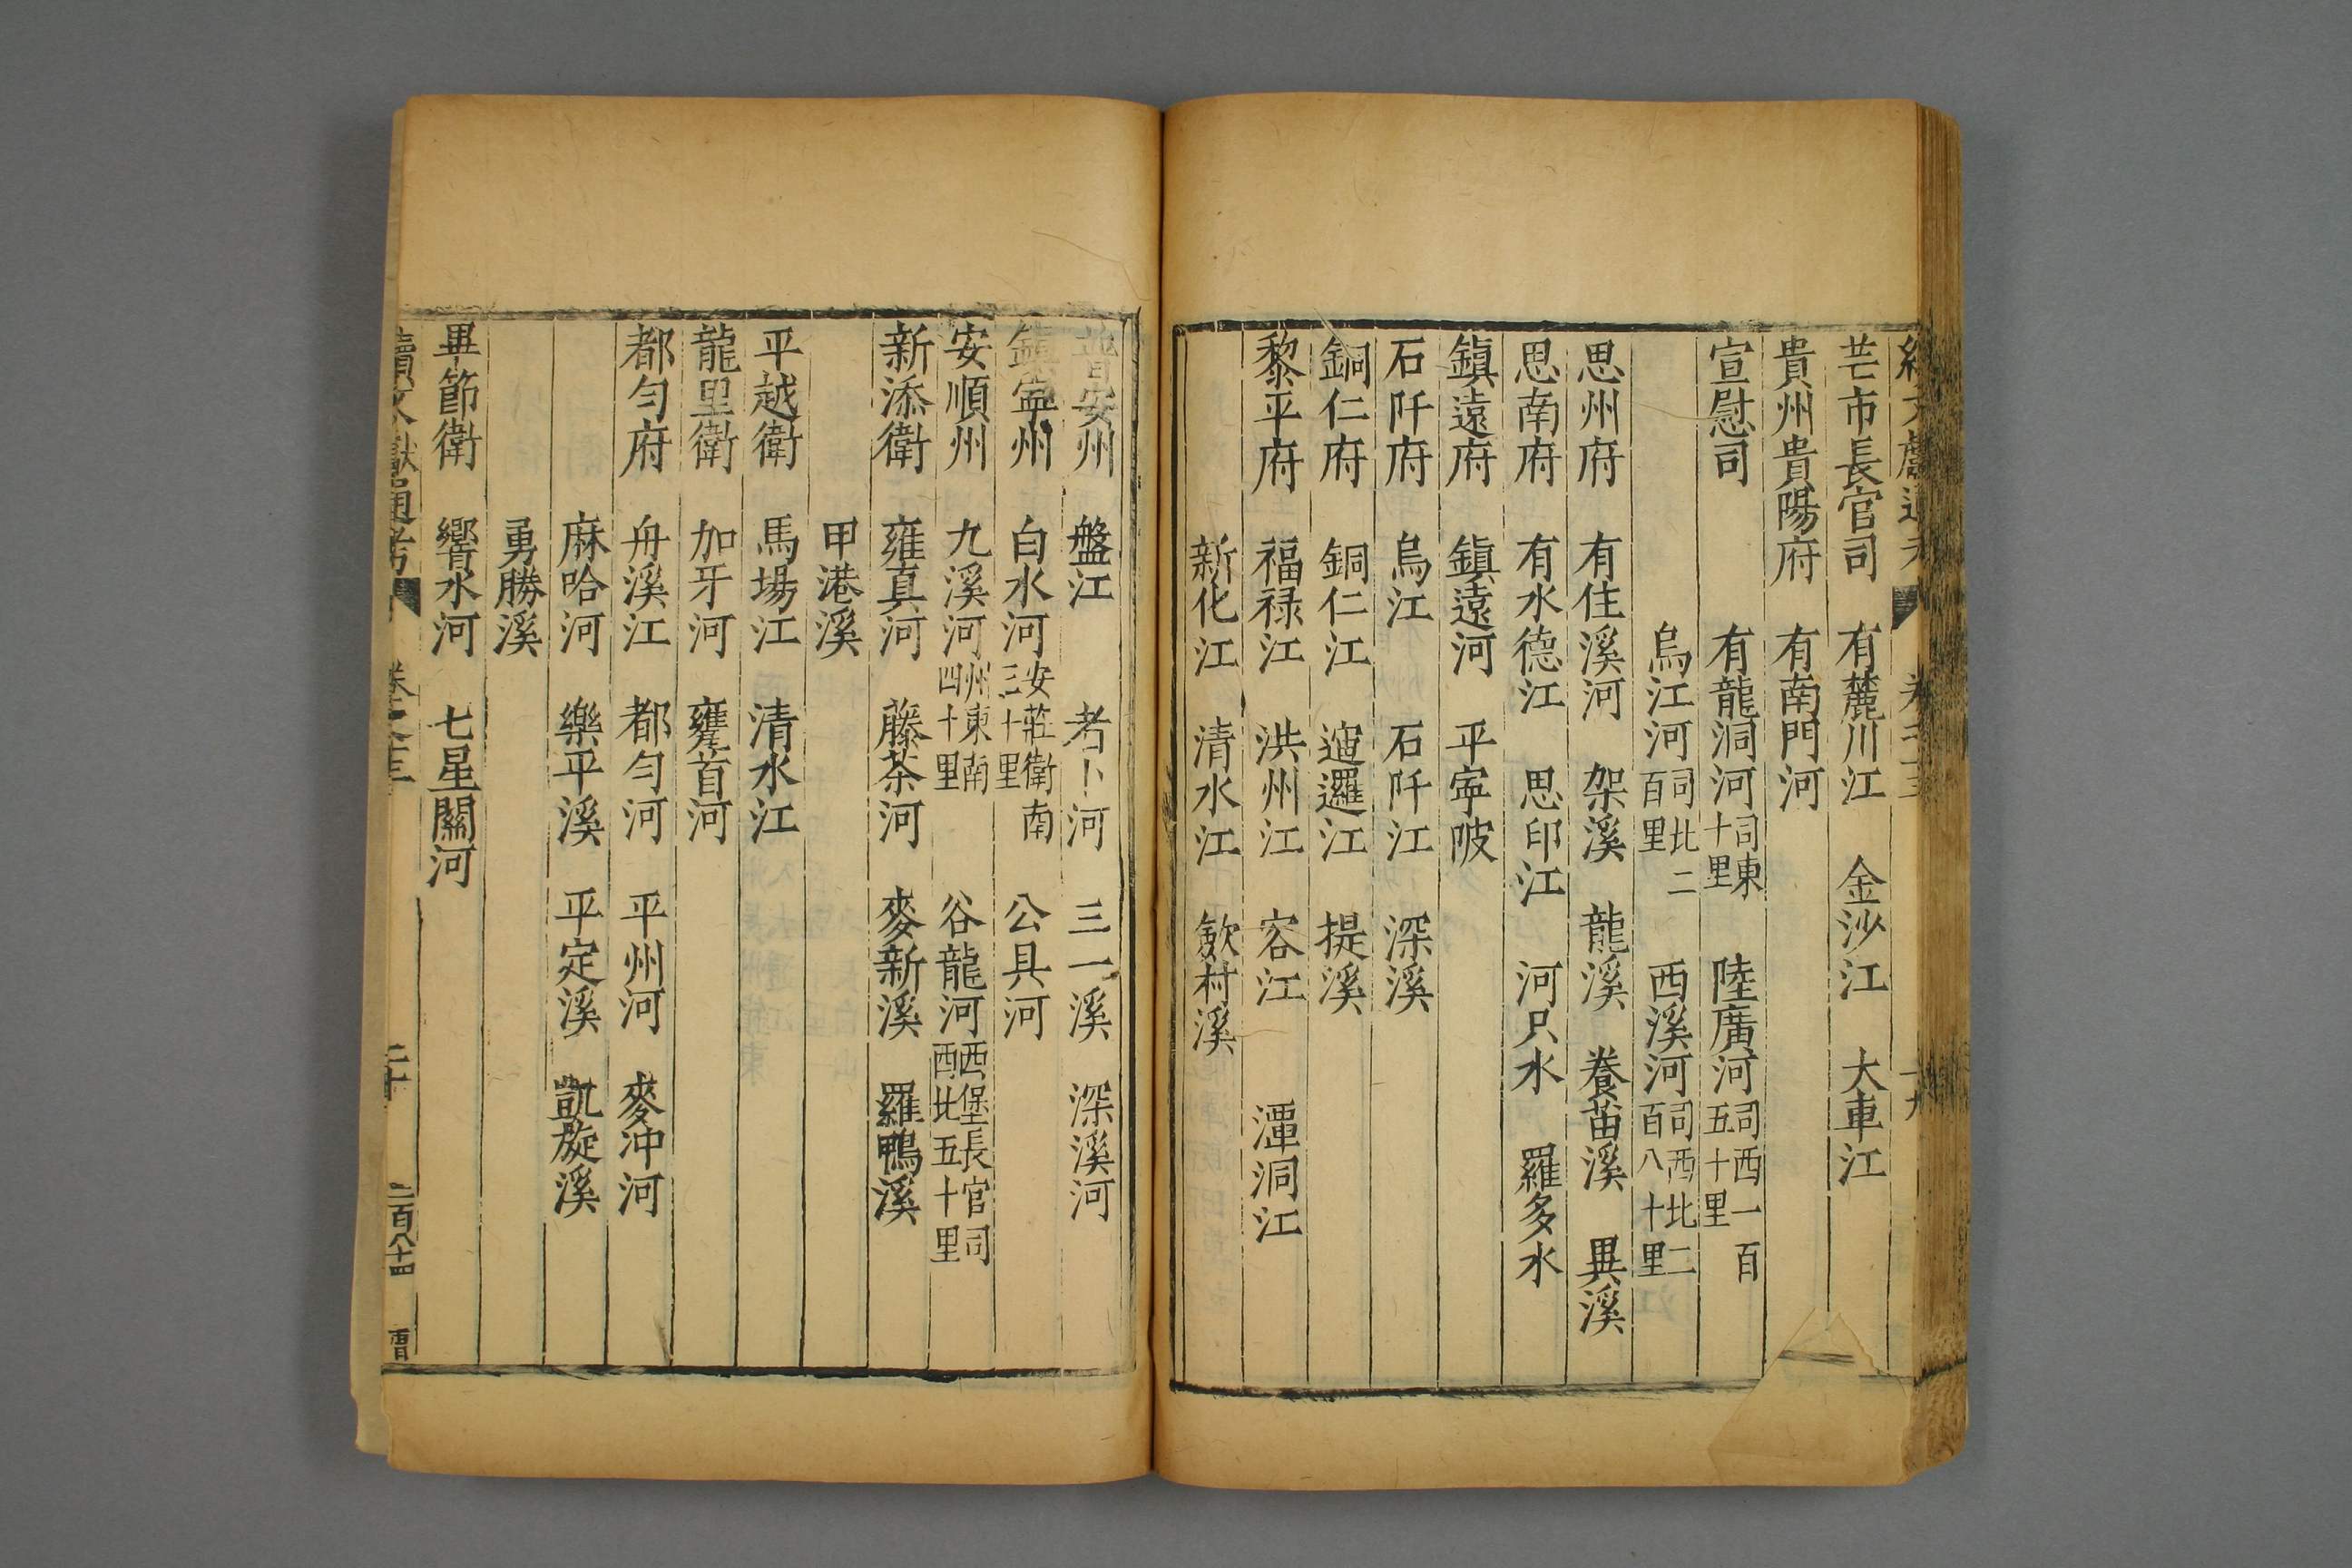 芒市長官司 有麓川江 金沙江 大車江
貴州貴陽府 有南門河
宣慰司 有龍洞河司東十里 陸廣河司西一百五十里
烏江河司北二百里 西溪河司西北二百八十里
思州府 有住溪河 架溪 龍溪 養苗溪 異溪
思南府 有水德江 思印江 河只水 羅多水
鎮遠府 鎮遠河 平寧陂
石阡府 烏江 石阡江 深溪
銅仁府 銅仁江 邅邏江 提溪
黎平府 福禄江 洪州江 容江 潭洞江
新化江 清水江 歛村溪
普安州 盤江 者卜河 三一溪 深溪河
鎮寧州 白水河安莊衛南三十里 公具河
安順州 九溪河州東南四十里 谷龍河西堡長官司西北五十里
新添衛 雍真河 藤茶河 麥新溪 羅鴨溪
甲港溪
平越衛 馬場江 清水江
龍里衛 加牙河 甕首河
都勻府 舟溪江 都勻河 平州河 麥冲河
麻哈河 樂平溪 平定溪 凱旋溪
勇勝溪
畢節衛 響水河 七星關河
續文獻通考 卷 二十 二百八十四 曹